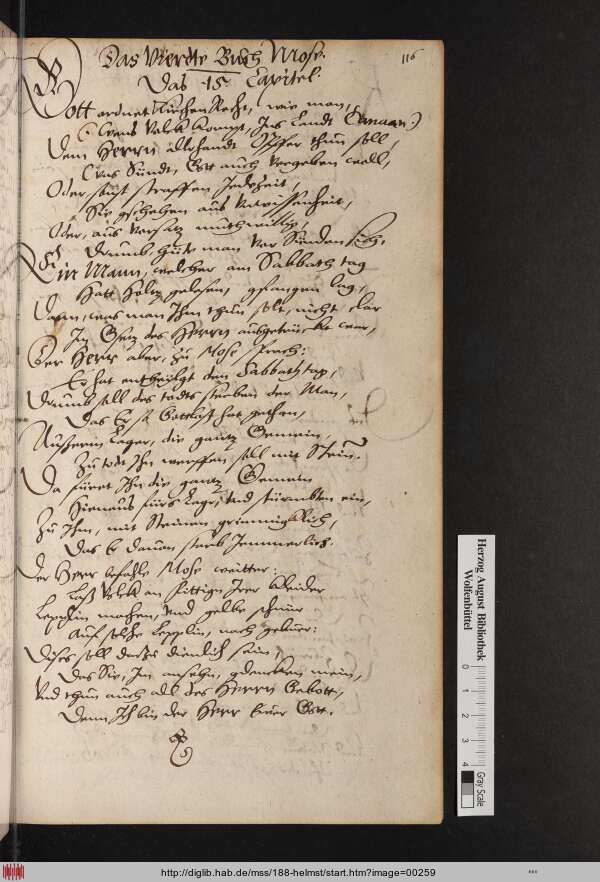 116
Das Vierdte Buch Mose.
Das 15 Capitel.
Gott ordnet Kirchen Recht, wie man,
(Wens Volck kompt, Ins Landt Canaan)
Dem Herrn allerhandt Opffer thun soll,
Was Sündt, Gott auch vergeben woll,
Oder sonst straffen Jederzeit,
Sie geschehen aus Unwissenheit,
Oder, aus Vorsatz muthwillig,
Drumb, hüte man vor Sünden sich.
Ein Mann, welcher am Sabbath tag
Hatt Holtz gelesen, gefangen lag,
Dann, was man Ihm thun solt, nicht klar
Im Gesetz des Herrn ausgedrückt war,
Der Herr aber, zu Mose sprach:
Er hat entheiligt den Sabbathtag,
Drumb soll des todts sterben der Man,
Das Er so Gottlos hat gethan,
Ausserm Lager, die gantz Gemein,
Zu todt Ihn werffen soll mit Stein.
Da füret Ihn die gantz Gemein
Hienaus fürs Leger, Und stürmbten ein,
Zu Ihm, mit Steinen grimmiglich,
Das Er davon starb Jemmerlich.
Der Herr befahle Mose weitter:
Laß Volck an Irer kleider
Lepplin machen, Und gelbe schnür
Auff solche Lepplin, nach gebüer:
Dises soll darzu dienlich sein,
Das Sie, Im ansehn, gedencken mein,
Und thun auch all des Herrn Gebott,
Denn Ich bin der Herr Euer Gott.
Herzog August Bibliothek
Wolfenbüttel
0 1 2 3 4
Gray Scale
http://diglib.hab.de/mss/188-helmst/start.htm?image=00259